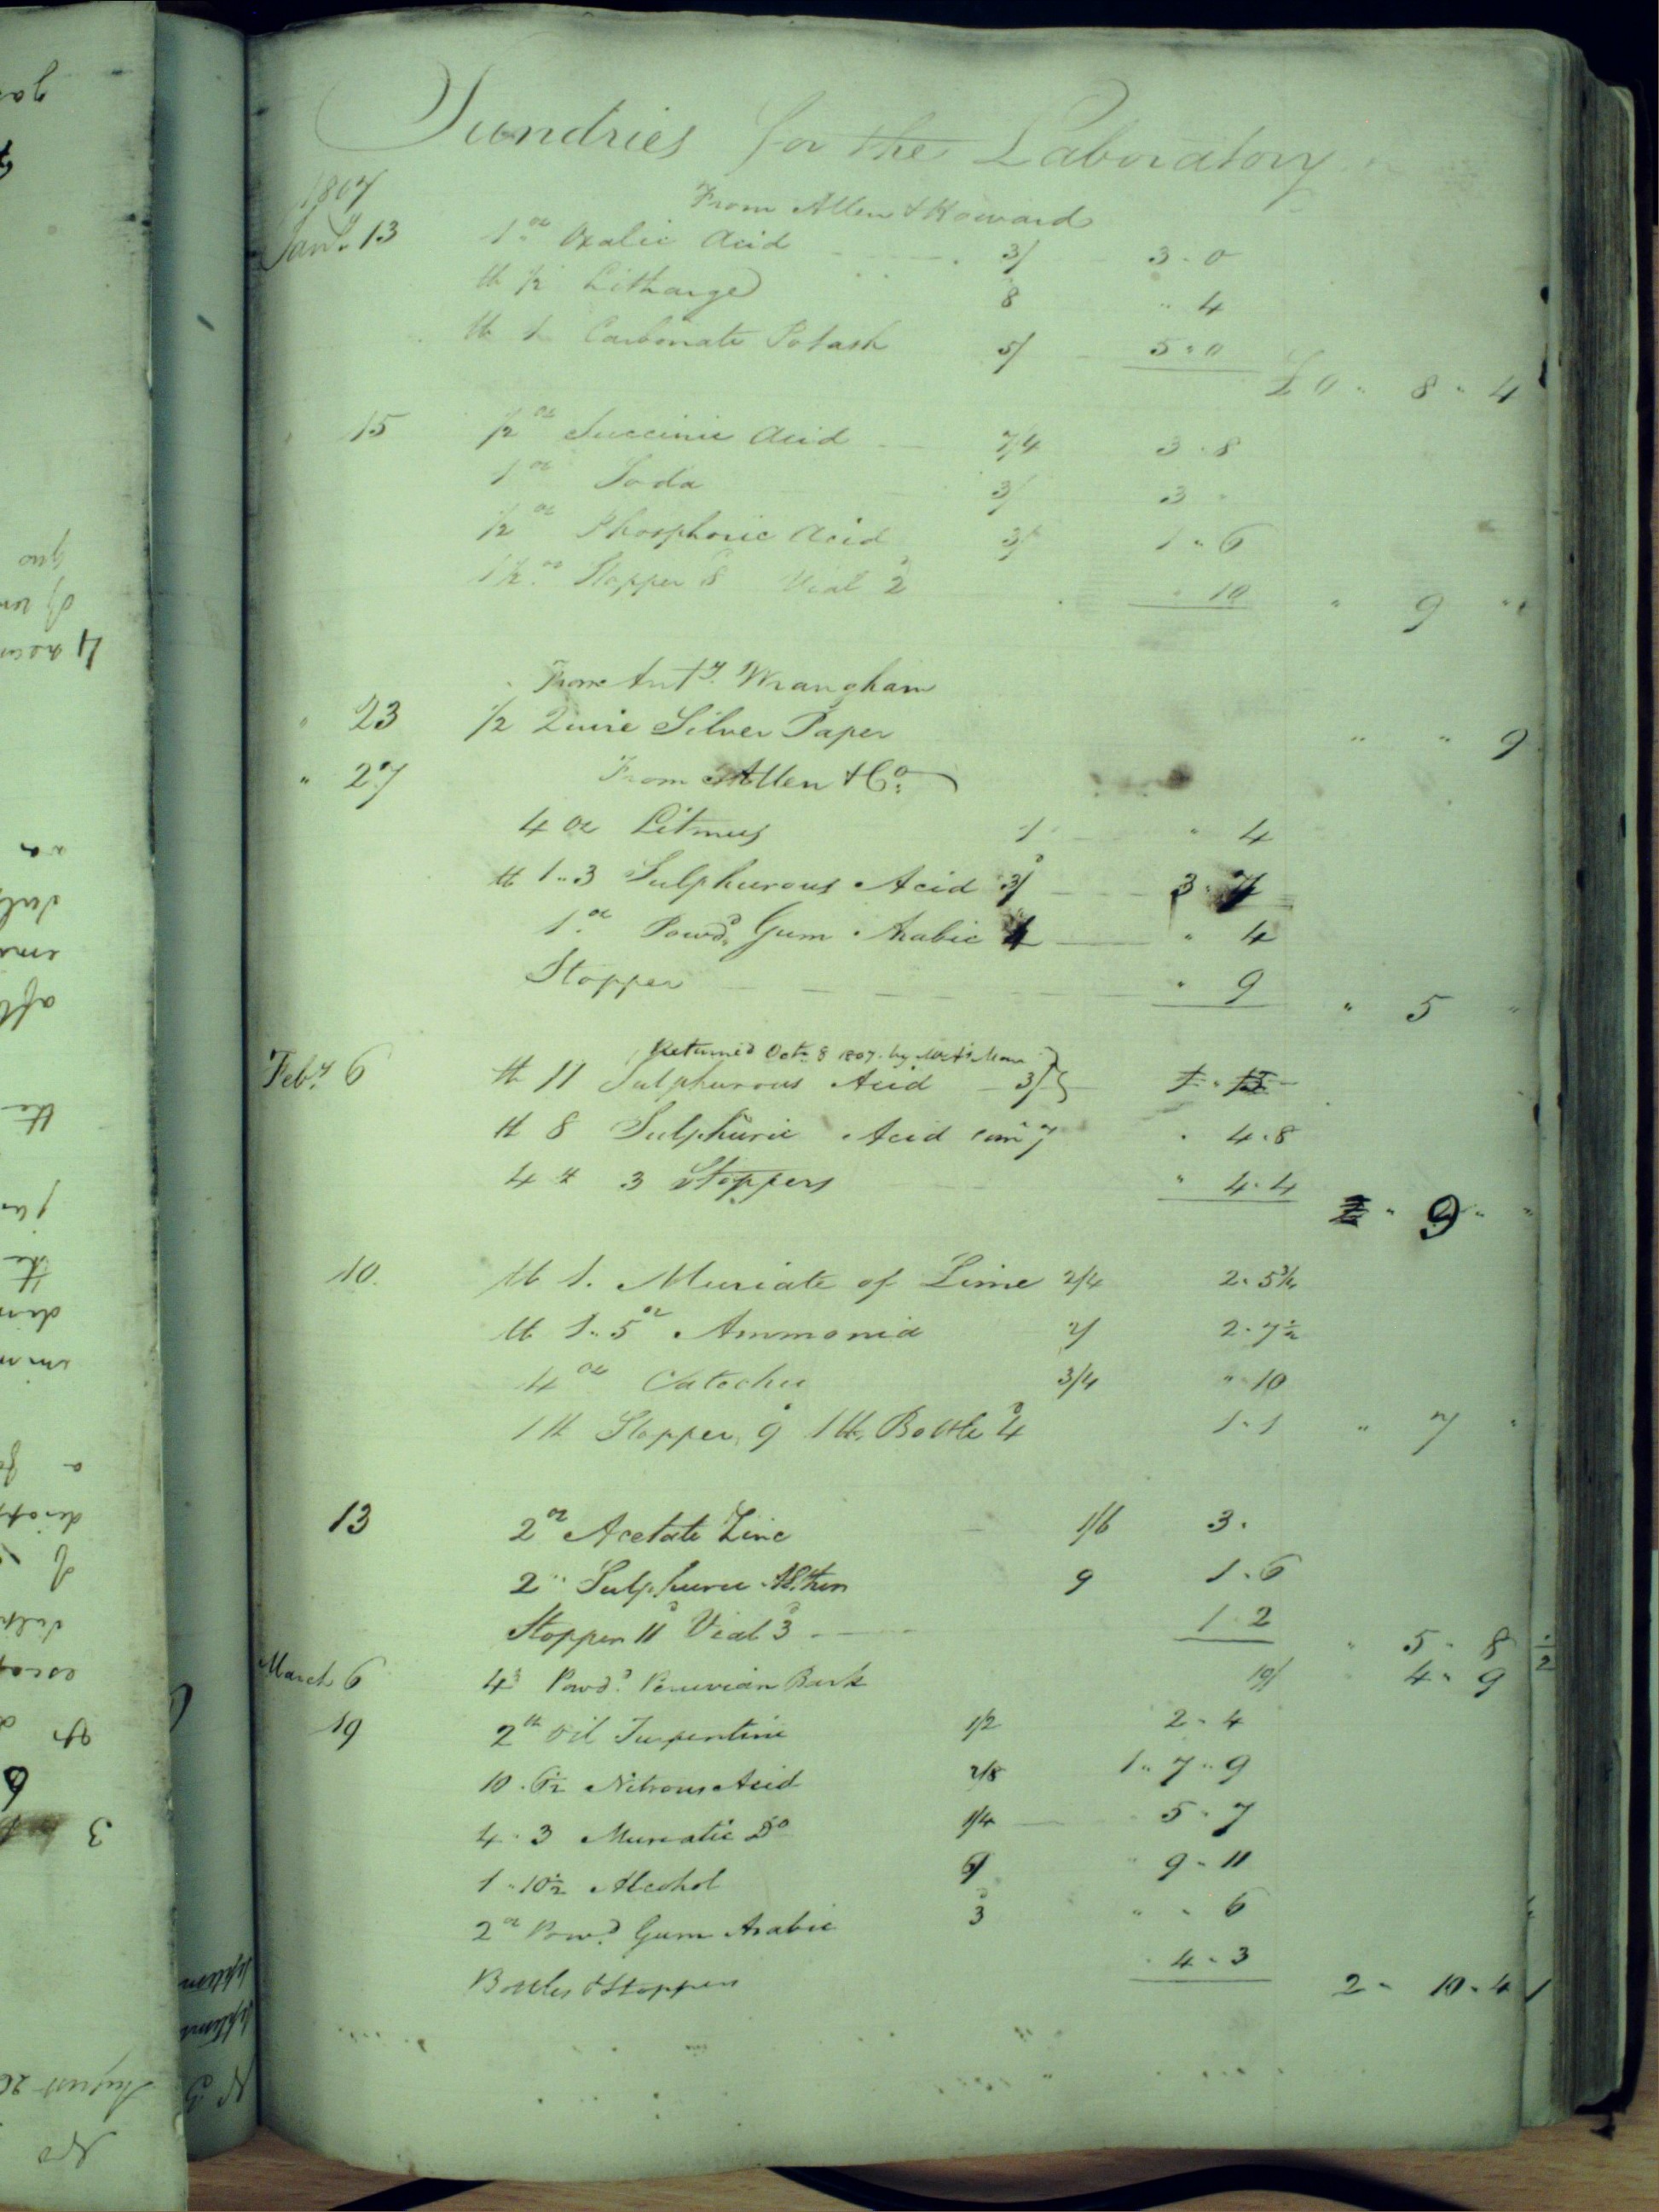 Sundries for the Laboratory
1807
From Allen & Howard
Jany. 13 1 oz Oxalic Acid 3/ 3 " 0
lb ½ Litharge 8 " 4
lb 1 Carbonate Potash 5/ 5 " 0
£0 " 8 " 4
15 ½ oz Succinic Acid 7/4 3 " 8
1 oz Soda 3/ 3 "
½ oz Phosphoric Acid 3/ 1 " 6
1½ oz Stopper 8 Vial 2 " 10 " 9 "
From Anty. Wrangham
" 23 ½ Quire Silver Paper " " 9
" 27 From Allen & Co.
4 oz Litmus 1 " 4
lb 1 " 3 Sulphurous Acid 3/ 3 " 7
1 oz Powd. Gum Arabic 4 " 4
Stopper " 9 " 5 "
Returned Octr. 8 1807 by
Feby. 6 lb 11 Sulphurous Acid 3/ 1 " 13
lb 8 Sulphuric Acid com 7 " 4 " 8
4 lb 3 Stoppers " 4 " 4
" 9 " "
10. lb 1. Muriate of Lime 2/4 2 " 5¾
lb 1 " 5 oz Ammonia 2/ 2 " 7½
4 oz Catechu 3/4 " 10
1 lb Stopper 9 1 lb Bottle 4 1 " 1 " 7 "
13 2 oz Acetate Zinc 1/6 3 "
2 " Sulphuric Æther 9 1 " 6
Stopper 11 Vial 3 1 " 2
" 5 " 8 ½
March 6 4 Powd. Peruvian Bark 19/ 4 " 9
19 2 lb Oil Turpentine 1/2 2 " 4
10 " 6½ Nitrous Acid 2/8 1 " 7 " 9
4 " 3 Muriatic Do 1/4 5 " 7
1 " 10½ Alcohol 6/ " 9 " 11
2 oz Powd. Gum Arabic 3 " " 6
Bottles & Stoppers " 4 " 3
2 " 10 " 4